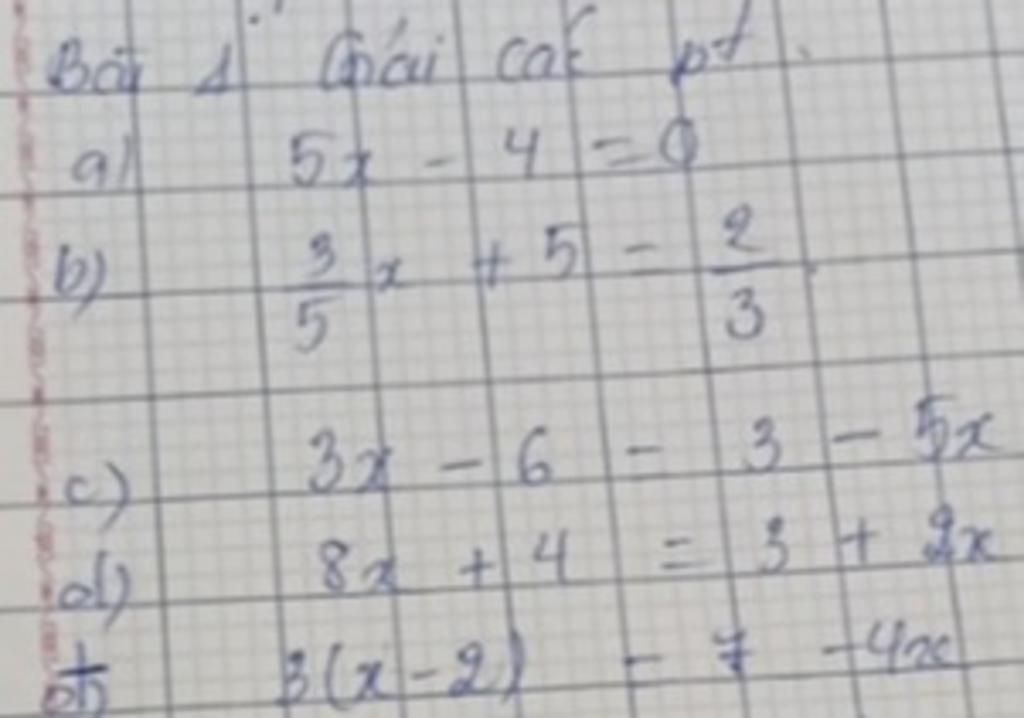 Bài 1 Giải các pt.
a) 5x - 4 = 0
b) 3/5 x + 5 = 2/3
c) 3x - 6 = 3 - 5x
d) 8x + 4 = 3 + 2x
3(x - 2) = 7 - 4x